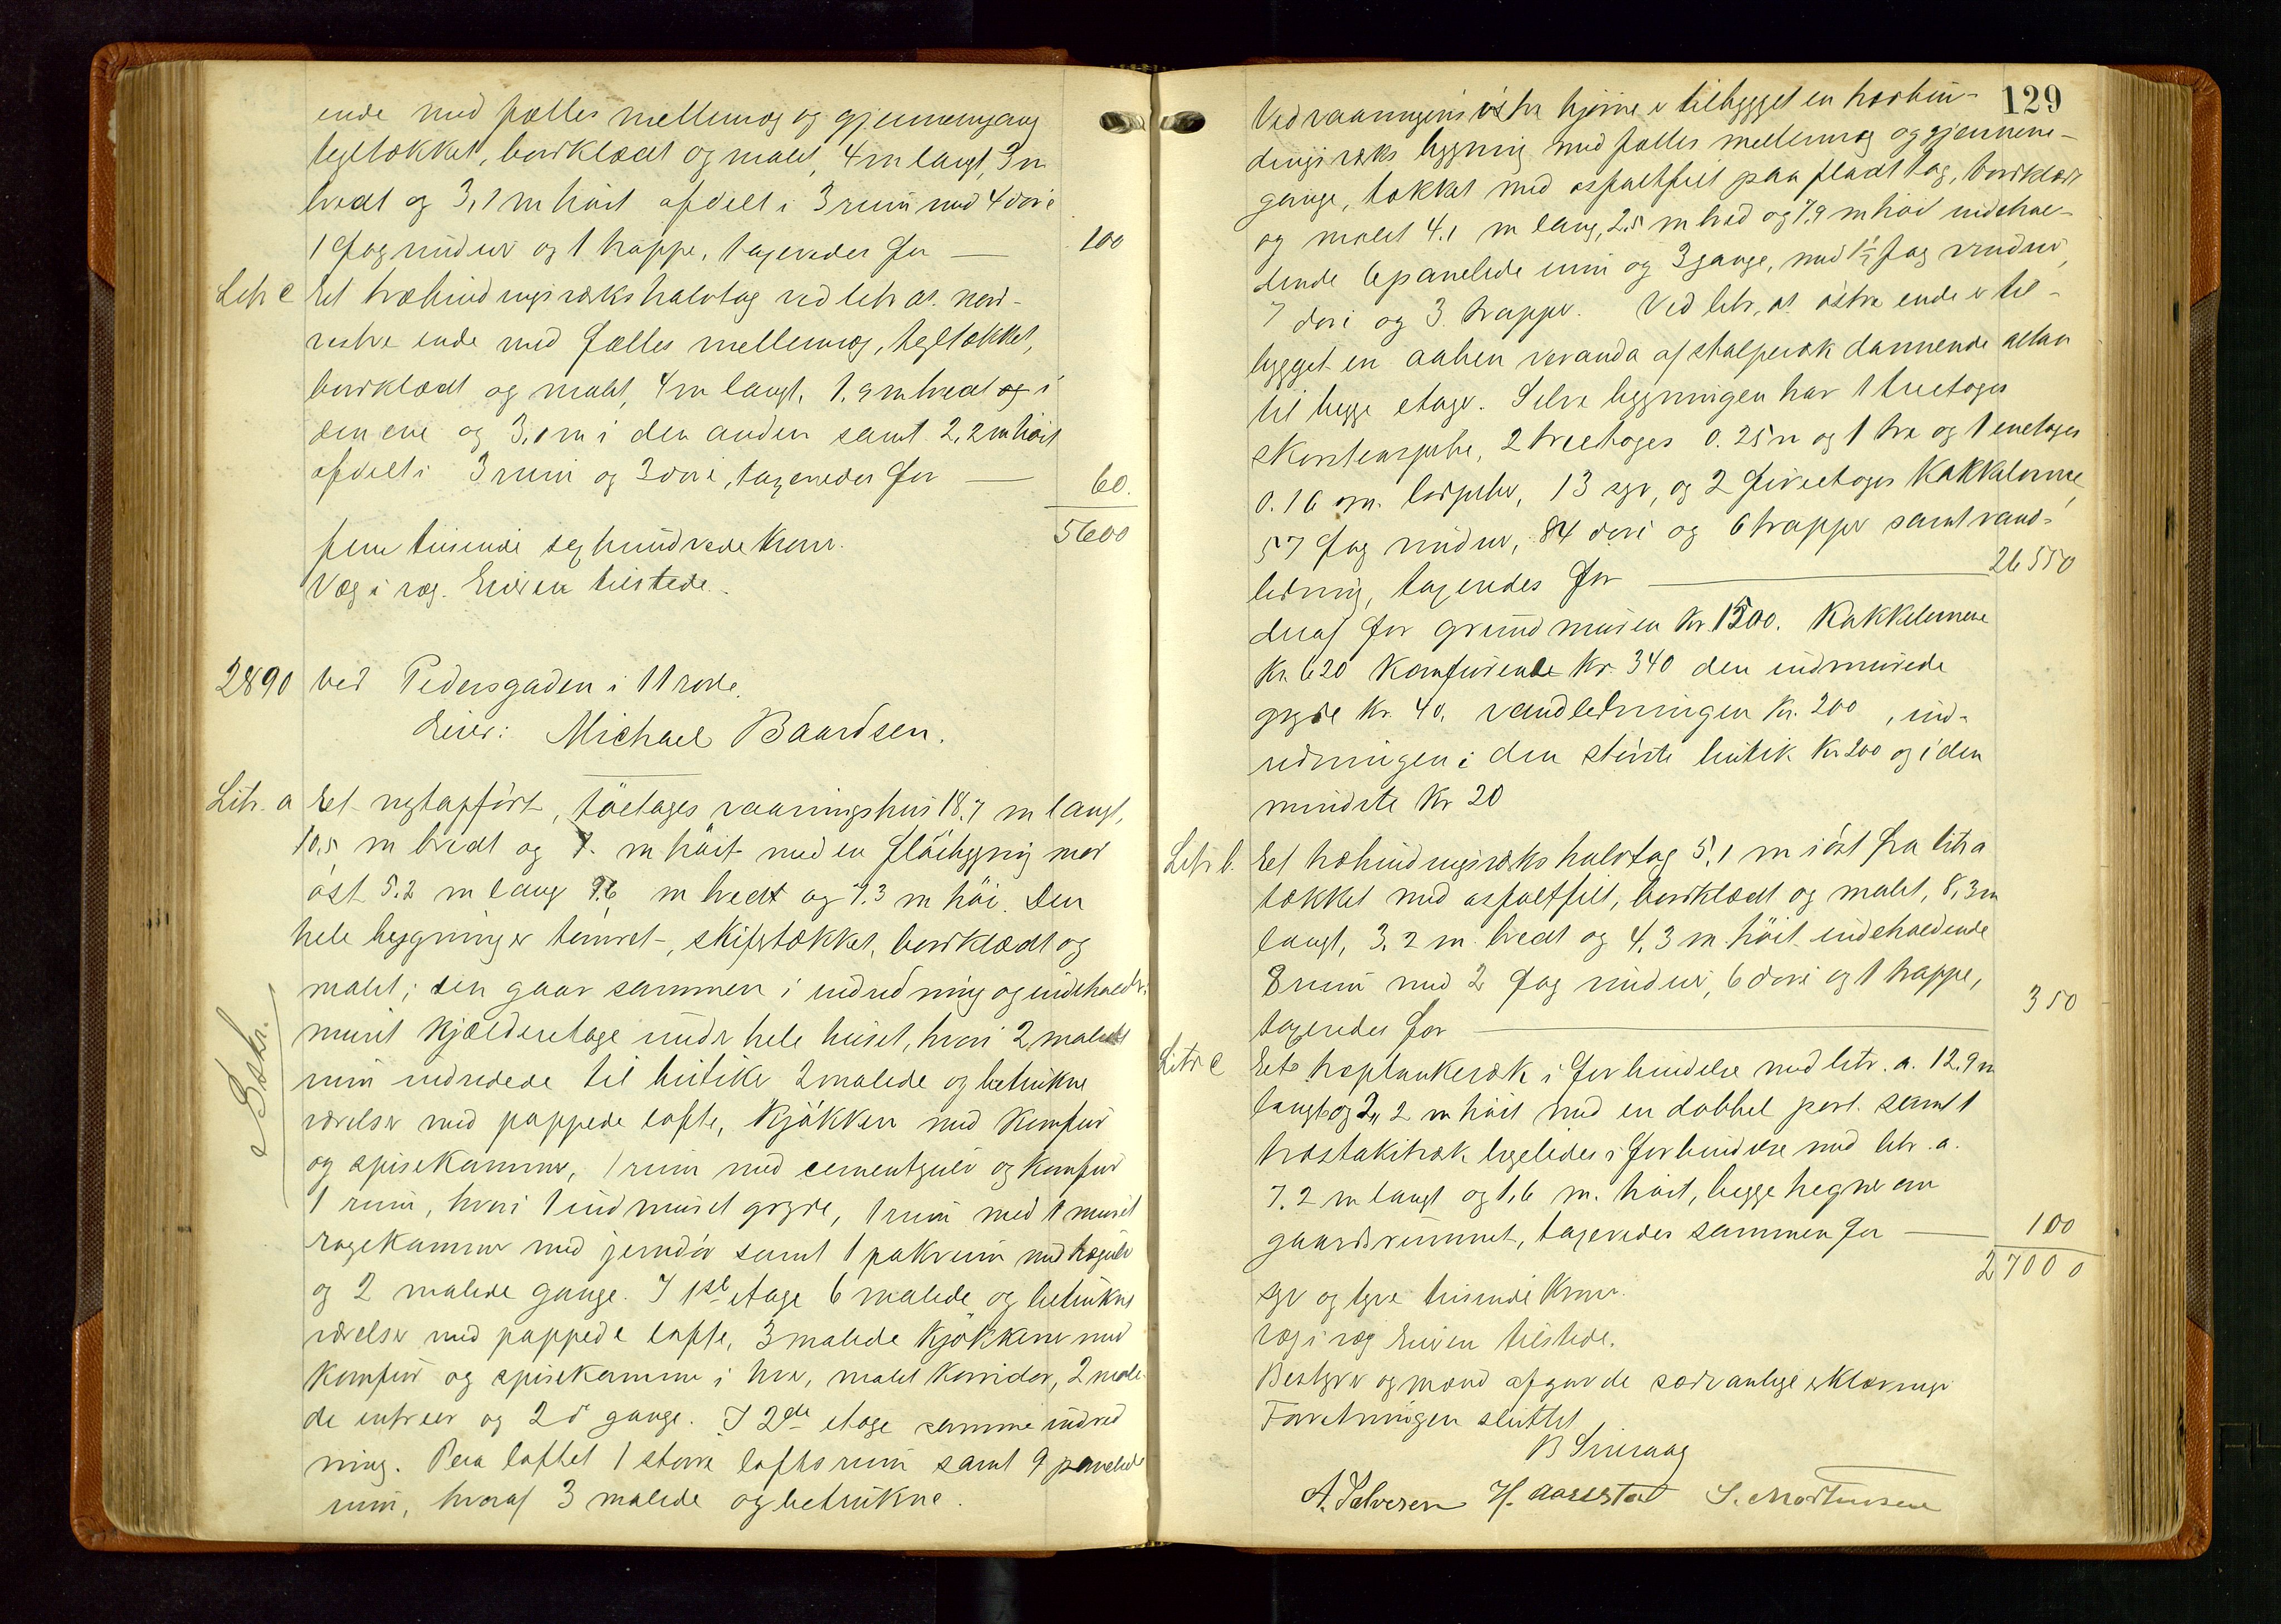 ende med fælles mellemvæg og gjennemgang
tegltækket, bordklædt og malet, 4 m langt, 3 m
bredt og 3,1 m høit afdelt i 3 rum med 4 døre
1 fag vinduer og 1 trappe, taxeredes for — 100
Litr c Et træbindingsværks halvtag ved litr a's nord-
vestre ende med fælles mellemvæg, tegltækket,
bordklædt og malet, 4 m langt, 1.9 m bredt og i
den ene og 3,0 m i den anden samt 2,2 m høit
afdelt i 3 rum og 3 døre, taxeredes for — 60.
5600
fem tusinde sex hundrede kroner.
Væg i væg. Eieren tilstede.
2890 ved Pedersgaden i 11 rode.
Eier: Michael Baardsen.
Litr. a Et nyt opført, toetages vaaningshus 18.7 m langt,
10,5 m bredt og 7. m høit med en fløibygning mod
øst 5.2 m lang 9.6 m bredt og 7.3 m høi. Den
hele bygning er tømret, skifertækket, bordklædt og
malet; den gaar sammen i indredning og indeholder:
muret kjælderetage under hele huset, hvori 2 malede
rum indredede til butiker 2 malede og betrukne
værelser med pappede lofte, kjøkken med komfur
og spisekammer, 1 rum med cementgulv og komfur
1 rum, hvori 1 indmuret gryde, 1 rum med 1 muret
røgekammer med jerndør samt 1 pakrum med trægulv
og 2 malede gange. I 1ste etage 6 malede og betrukne
værelser med pappede lofte, 3 malede kjøkkener med
komfur og spisekammer i hver, malet korridor, 2 male-
de entreer og 2 do gange. I 2den etage samme indred
ning. Paa loftet 1 større loftsrum samt 9 panelede
rum, hvoraf 3 malede og betrukne.
129
Ved vaaningens østre hjørne er tilbygget en træbin-
dingsværks bygning med fælles mellemvæg og gjennem-
gange, tækket med asfaltfilt paa fladt tag, bordklædt
og malet 4.1 m lang, 2.5 m bred og 7.9 m høi indehol-
dende 6 panelede rum og 3 gange, med 1½ fag vinduer,
7 døre og 3 trapper. Ved litr. a's østre ende er til-
bygget en aaben veranda af stolpeværk dannende altan
til begge etager. Selve bygningen har 1 treetages
skorstenspibe, 2 treetages 0.25 m og 1 tre og 1 enetages
0.16 m. lodpiber, 13 syv, og 2 fireetages kakkelovne,
57 fag vinduer, 84 døre og 6 trapper samt vand-
ledning, taxeredes for — 26550
deraf for grundmuren kr. 1500. Kakkelovnene
kr. 620 komfurende kr. 340 den indmurede
gryde kr. 40, vandledningen kr. 200, ind-
redningen i den største butik kr 200 og i den
mindste kr 20
Litr b. Et træbindingsværks halvtag 5,1 m i øst fra litr a
tækket med asfaltfilt, bordklædt og malet, 8,3 m
langt, 3,2 m bredt og 4,3 m høit indeholdende
8 rum med 2 fag vinduer, 6 døre og 1 trappe,
taxeredes for — 350
Litr c Et træplankeværk i forbindelse med litr. a. 12,9 m
langt og 2,2 m høit med en dobbel port samt 1
træstakitværk ligeledes i forbindelse med litr. a.
7.2 m langt og 1,6 m. høit, begge hegner om
gaardsrummet, taxeredes sammen for — 100
27000
syv og tyve tusinde kroner.
væg i væg Eieren tilstede.
Bestyrer og mænd afgav de sædvanlige erklæringer
Forretningen sluttet
A. Salvesen H. Aarestad S. Mortensen